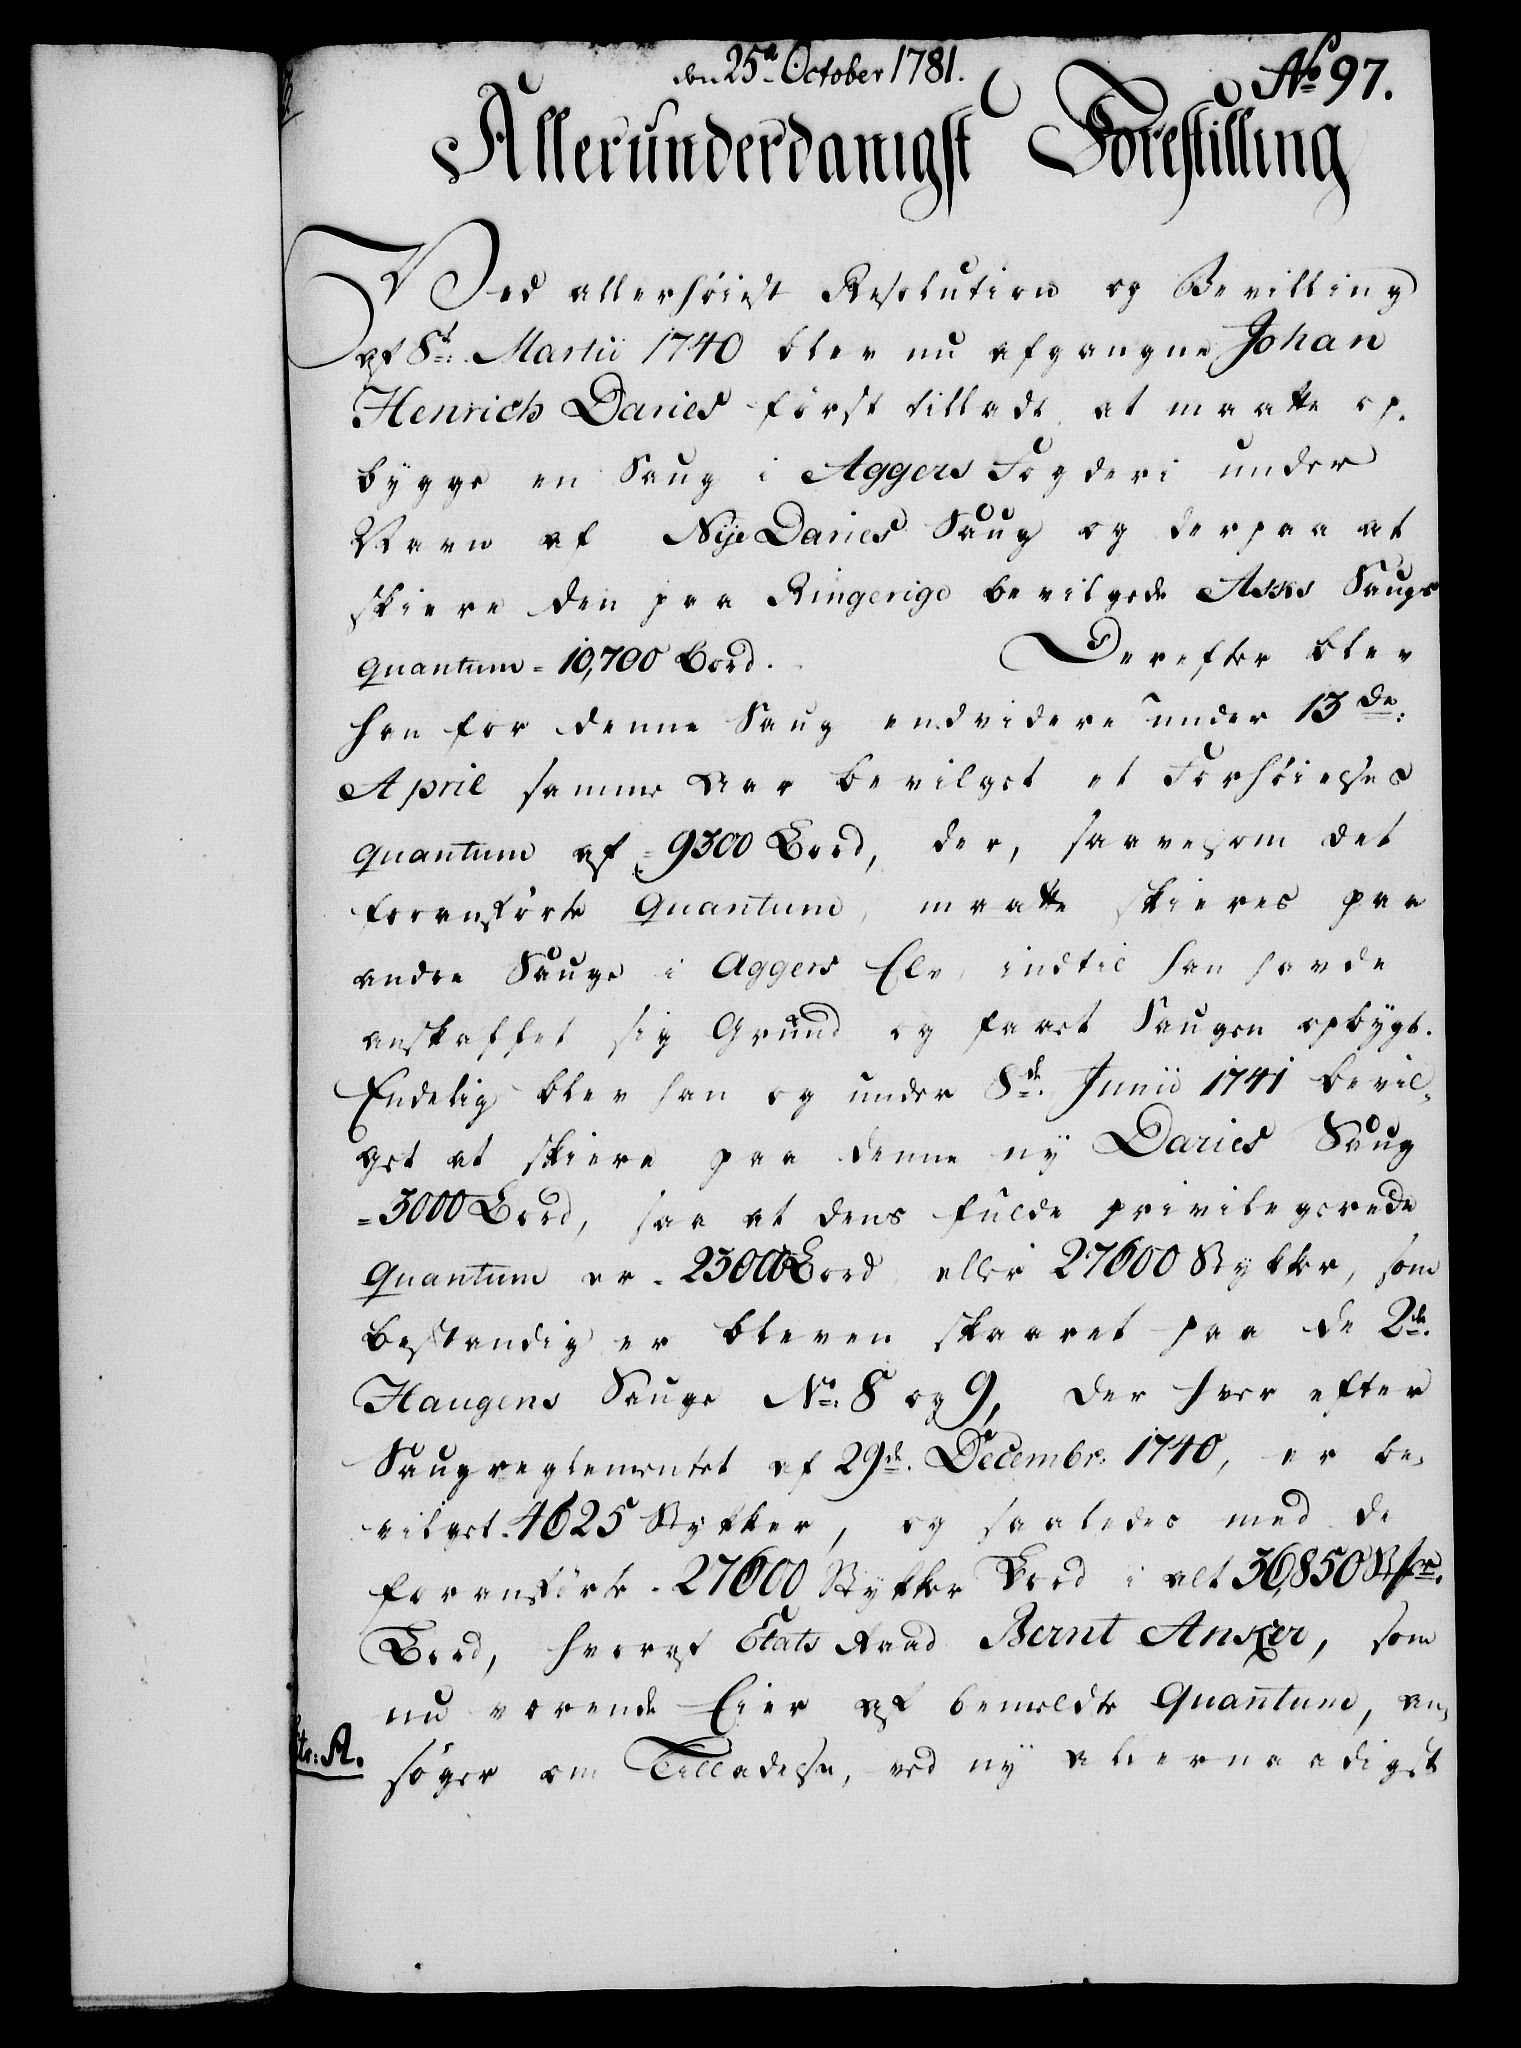 den 25de October 1781.
No 97.
Allerunderdanigst Forestilling
Ved allerhöiest Resolution og Bevilling
af 8t: Martii 1740 blev nu afgangne Johan
Henrich Daries först tilladt at maatte op-
bygge en Saug i Aggers Fogderi under
Navn af Nye Daries Saug og derpaa at
skiere den paa Ringerige bevilgede Asks Saugs
quantum = 10,700 Bord. Derefter blev
han for denne Saug endvidere under 13de:
April samme Aar bevilget et Forhöielses
quantum af = 9300 Bord, der, saavelsom det
foranförte Quantum, maatte skieres paa
andre Sauge i Aggers Elv, indtil han havde
anskaffet sig Grund og faaet Saugen opbygt.
Endelig blev han og under 8de. Junii 1741 bevil-
get at skiere paa denne ny Daries Saug
= 3000 Bord, saa at dens fulde privilegerede
Quantum er = 23000 Bord eller 27600 Stykker, som
bestandig er bleven skaaret paa de 2de.
Haugens Sauge No: 8 og 9, der hver efter
Saugreglementet af 29de. Decembr: 1740, er be-
vilget = 4625 Stykker, og saaledes med de
foranförte = 27600 Stykker Bord i alt 36,850 Stkr.
Bord, hvoraf Etats Raad Bernt Anker, som
nu værende Eier af bemeldte Quantum, an-
Ltr: A.
söger om Tilladelse, ved ny allernaadigst